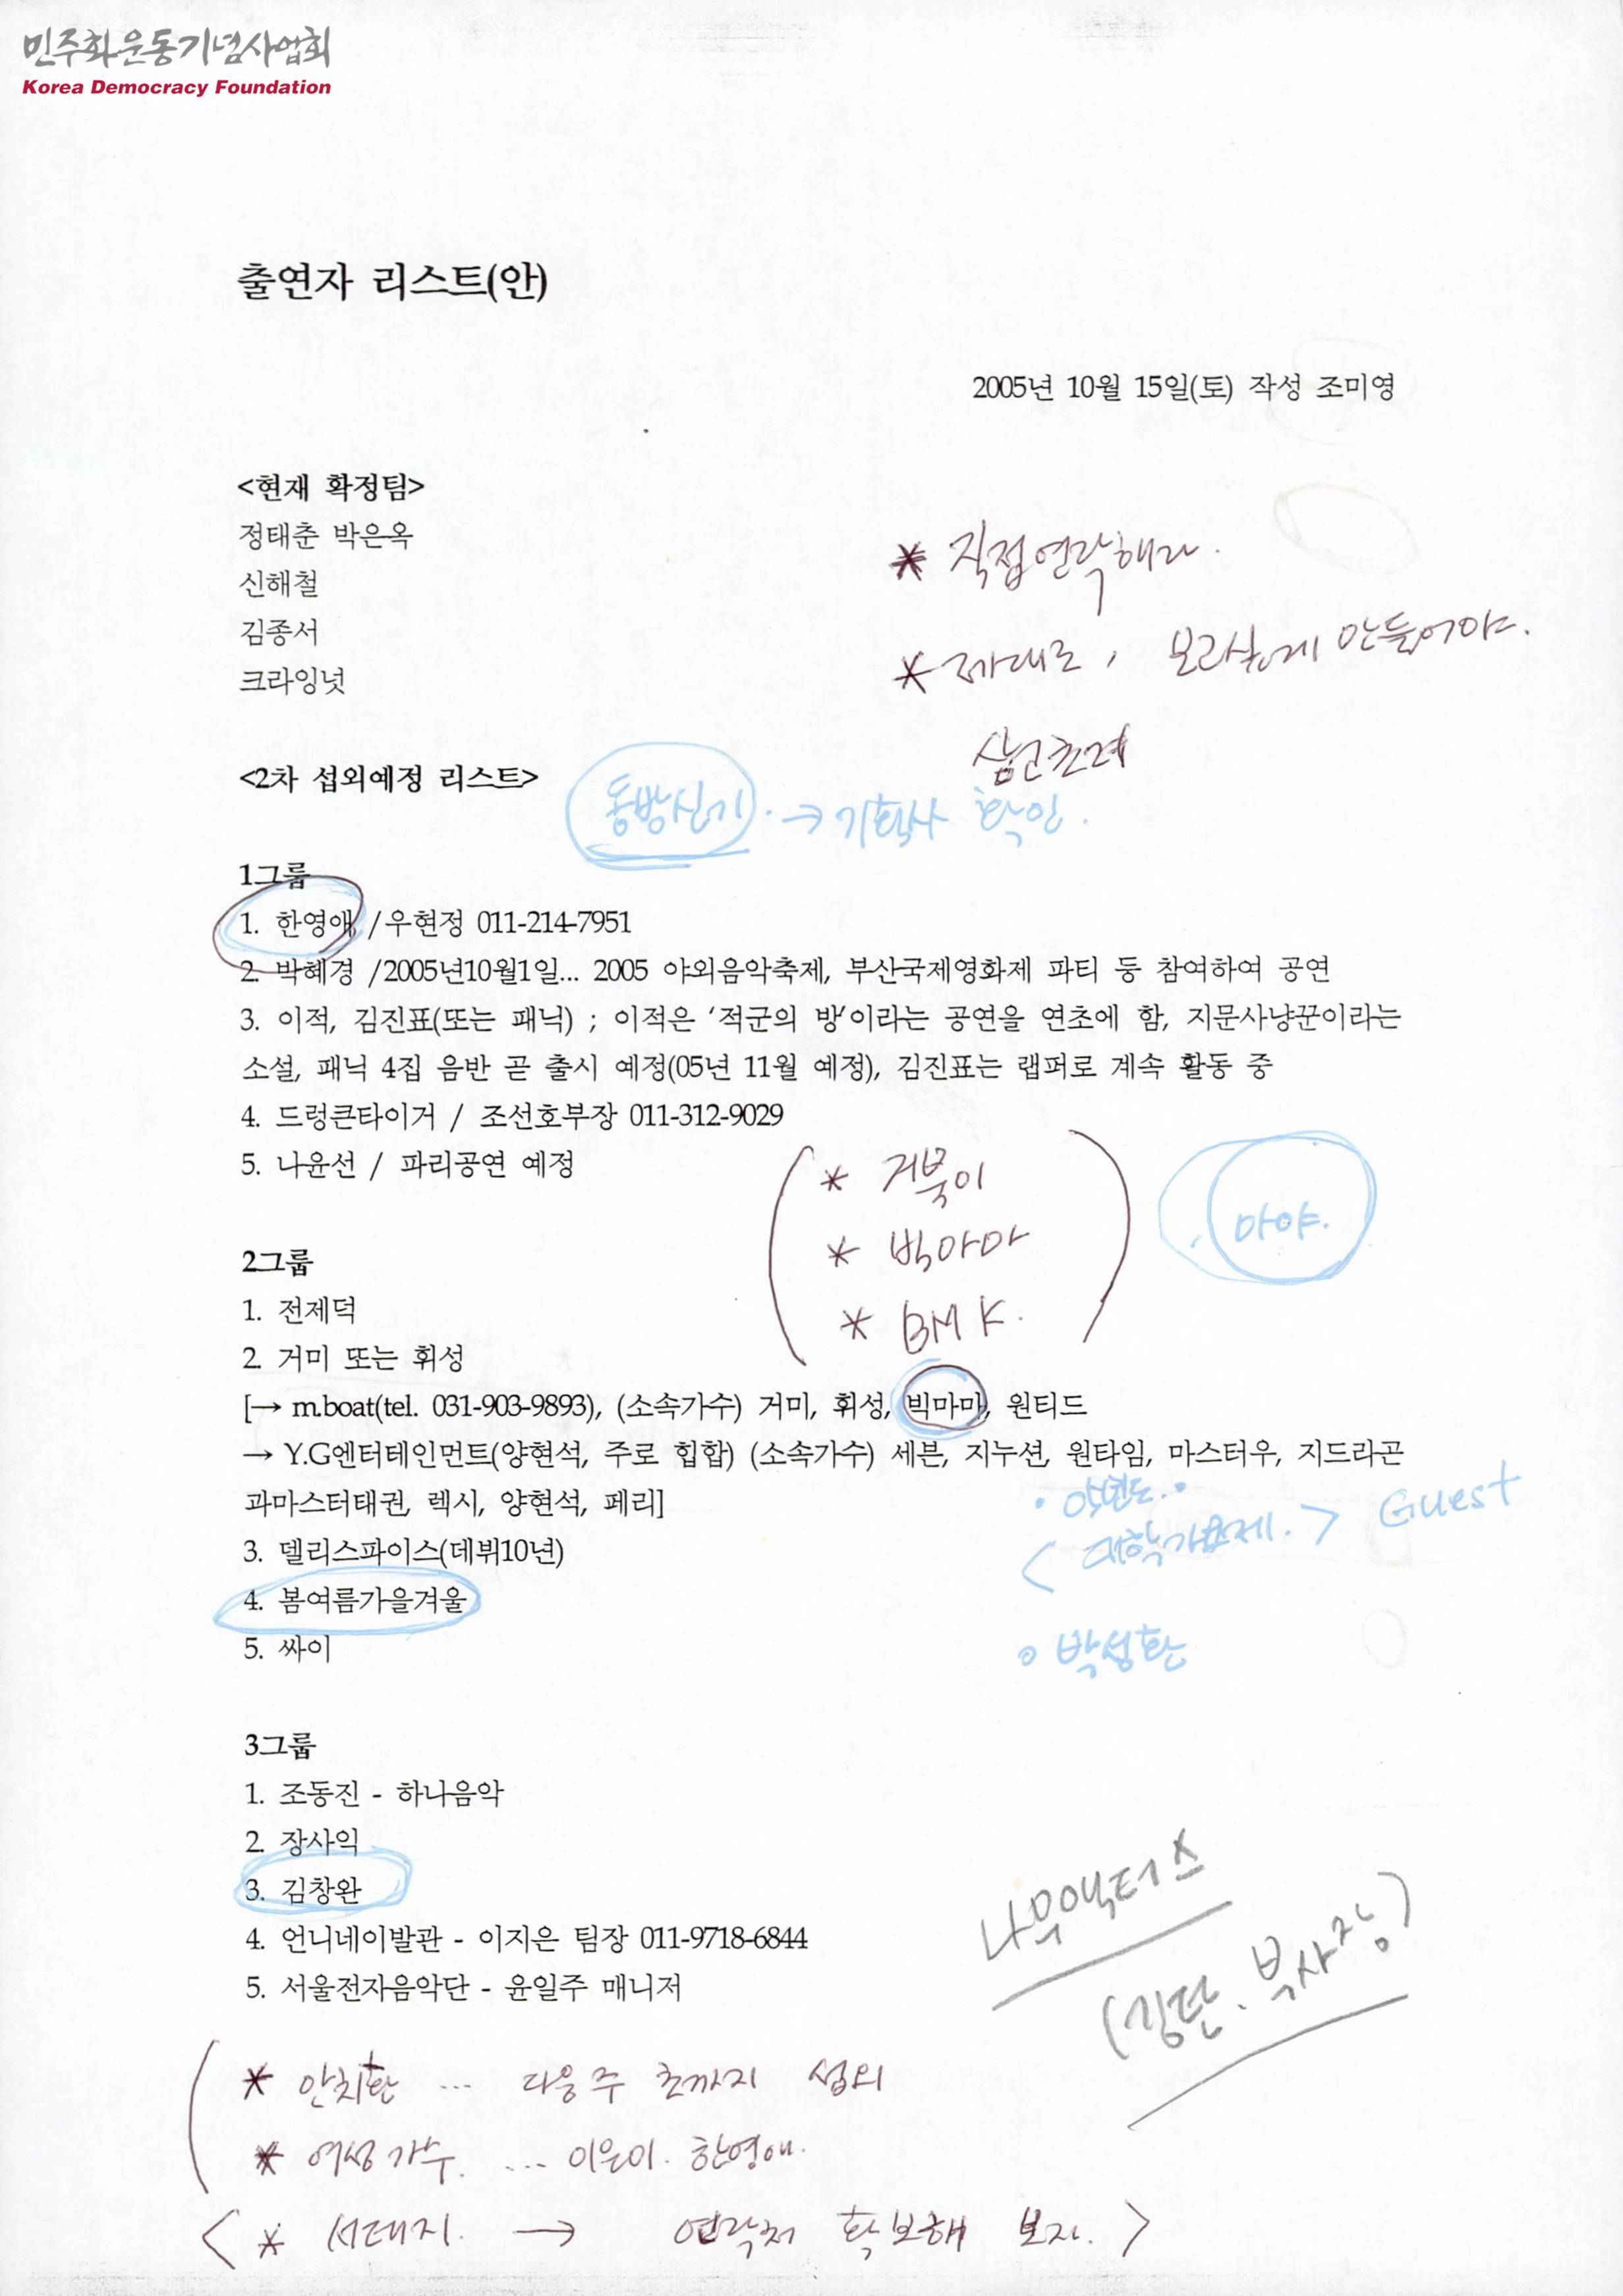 민주화운동기념사업회
Korea Democracy Foundation
출연자 리스트(안)
2005년 10월 15일(토) 작성 조미영
<현재 확정팀>
정태춘 박은옥
신해철
김종서
크라잉넛
* 직접연락해라.
* 제대로, 보라색게 만들어야.
삼고초려
<2차 섭외예정 리스트>
동방신기. → 기획사 확인.
1그룹
1. 한영애 /우현정 011-214-7951
2. 박혜경 /2005년10월1일... 2005 야외음악축제, 부산국제영화제 파티 등 참여하여 공연
3. 이적, 김진표(또는 패닉) ; 이적은 '적군의 방'이라는 공연을 연초에 함, 지문사냥꾼이라는
소설, 패닉 4집 음반 곧 출시 예정(05년 11월 예정), 김진표는 랩퍼로 계속 활동 중
4. 드렁큰타이거 / 조선호부장 011-312-9029
5. 나윤선 / 파리공연 예정
* 거북이
* 빅마마
* BMK.
마야.
2그룹
1. 전제덕
2. 거미 또는 휘성
[→ m.boat(tel. 031-903-9893), (소속가수) 거미, 휘성, 빅마마, 원티드
→ Y.G엔터테인먼트(양현석, 주로 힙합) (소속가수) 세븐, 지누션, 원타임, 마스터우, 지드라곤
과마스터태권, 렉시, 양현석, 페리]
3. 델리스파이스(데뷔10년)
4. 봄여름가을겨울
5. 싸이
< 대학가요제. > Guest
박성환
3그룹
1. 조동진 - 하나음악
2. 장사익
3. 김창완
4. 언니네이발관 - 이지은 팀장 011-9718-6844
5. 서울전자음악단 - 윤일주 매니저
나무액터스
(김단. 부사장)
* 안치환 ... 다음주 초까지 섭외
* 여성가수. ... 이은미. 한영애.
< * 서태지. → 연락처 확보해 보자. >